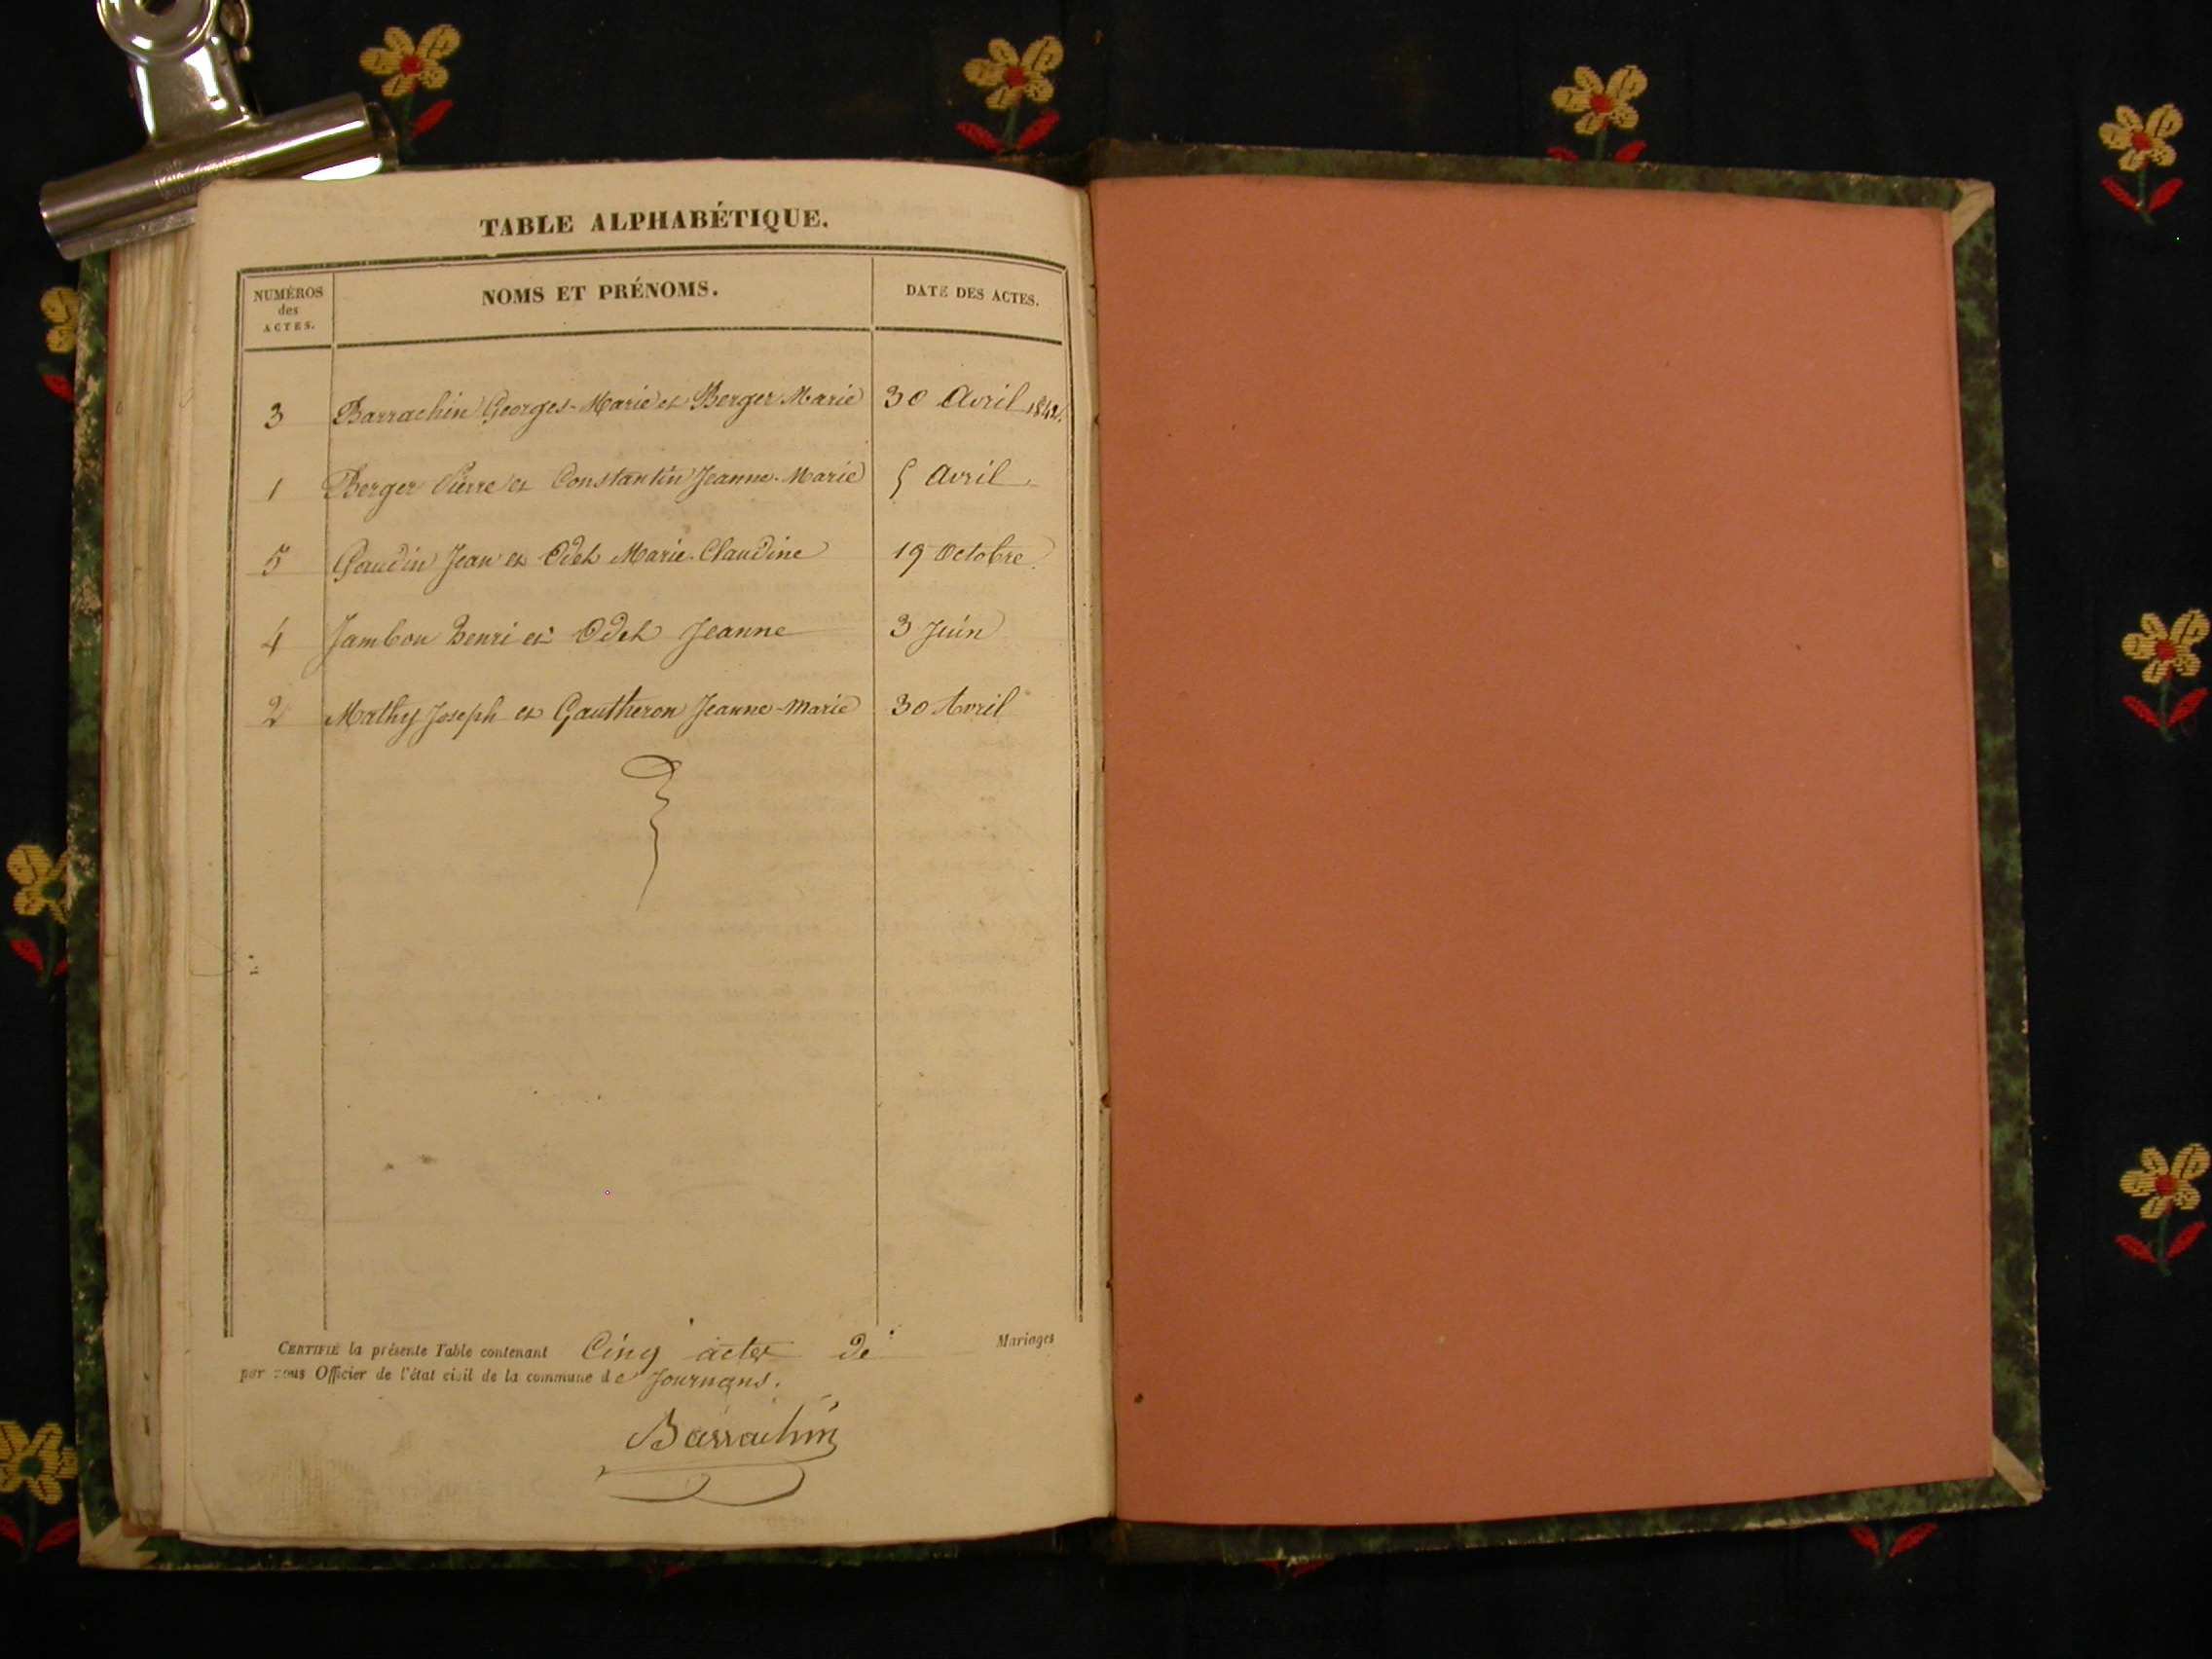 TABLE ALPHABÉTIQUE.
NUMÉROS
des
ACTES.
NOMS ET PRÉNOMS.
DATE DES ACTES.
3 Barrachin Georges-Marie et Berger Marie 30 Avril 1842.
1 Berger Pierre et Constantin Jeanne-Marie 5 Avril
5 Gaudin Jean et Odet Marie-Claudine 19 Octobre
4 Jambon Benri et Odet Jeanne 3 Juin
2 Mathy Joseph et Gautheron Jeanne-Marie 30 Avril
CERTIFIÉ la présente Table contenant Cinq actes de Mariages
par nous Officier de l'état civil de la commune de Journans.
Barrachin